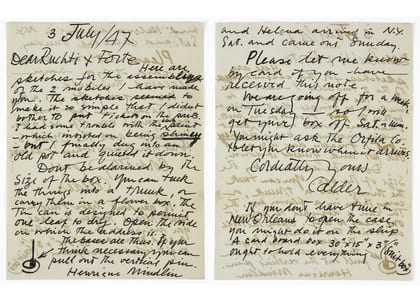 3 July/47
Dear Ruchti & Forte
Here are
sketches for the assemblage
of the 2 mobiles I have made
you. The sketches seemed to
make it so simple that I didn't
bother to put tickets on the parts
I had some trouble with the
which insisted on being
- but I finally dug into an
old pot and quieted it down.
Don't be alarmed by the
size of the box. You can tuck
the things into a trunk or
carry them in a flower box. The
tin can is designed to permit
one leaf to dry. Open the side
on which the address is.
The bases are thus. If you
think necessary you can
pull out the vertical pin.
Henrique Mindlin
and Helena arrived in N.Y.
Sat. and came out Sunday.
Please let me know
by card if you have
received this note.
We are going off for a week
on Tuesday - so I will
get your box off Sat.
You might ask the
to let you know when it arrives.
Cordially yours
Calder
If you don't have time in
New Orleans to open the case,
you might do it on the ship
A card board box 30" x 15" x 3"
ought to hold everything